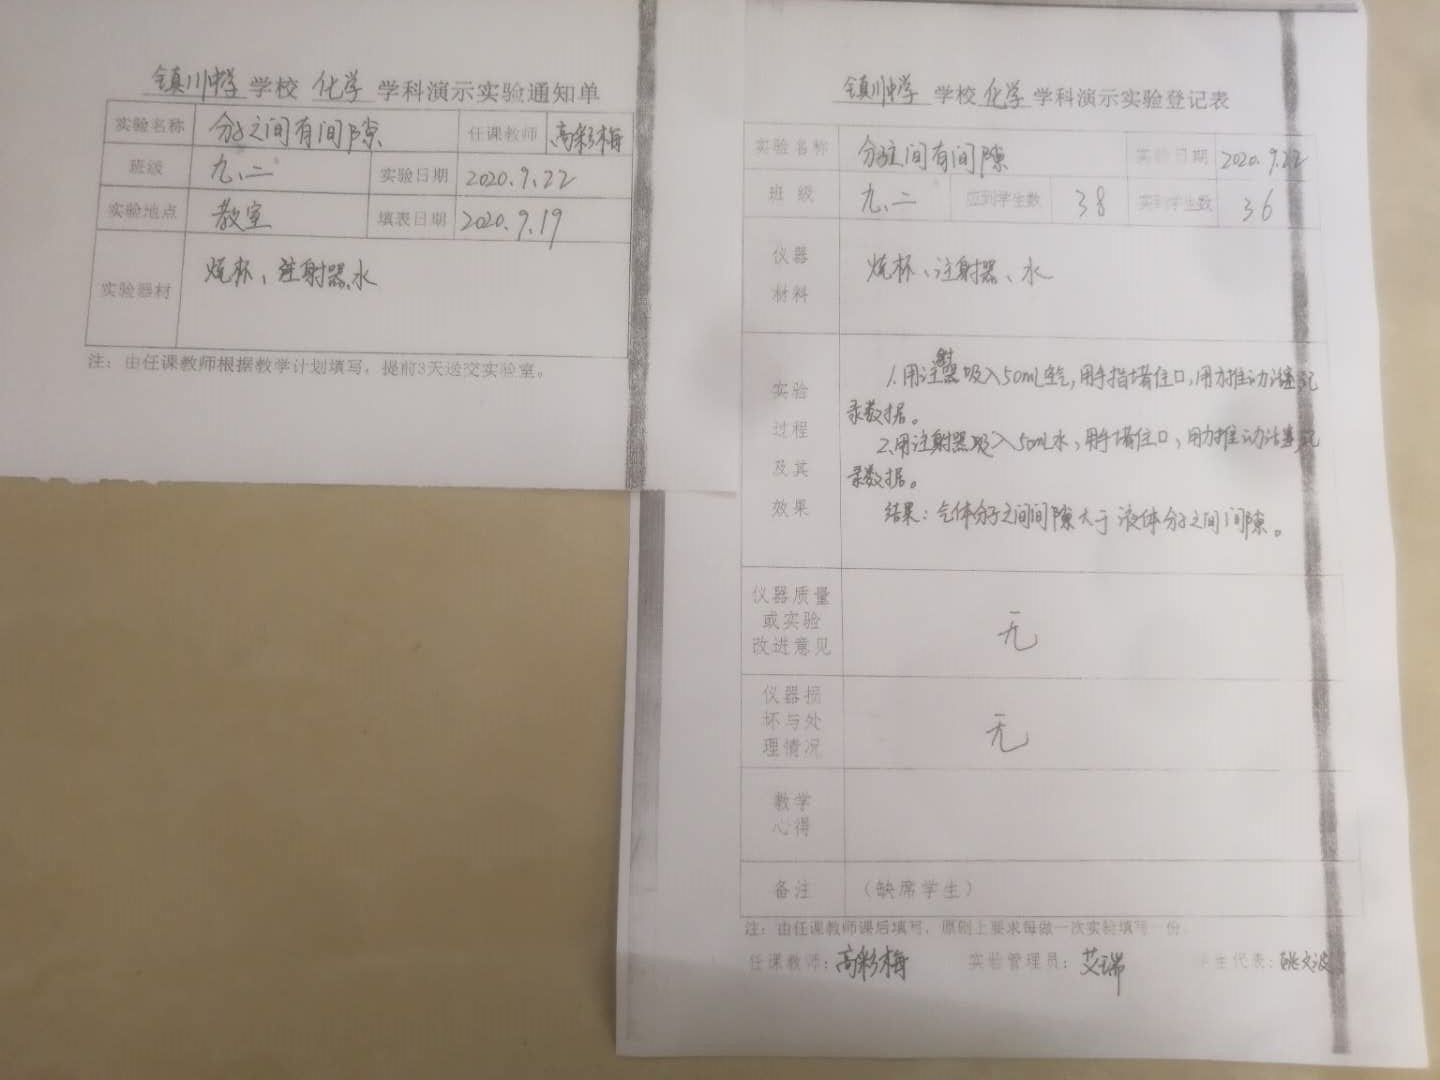 镇川中学 学校 化学 学科演示实验通知单
实验名称 分子之间有间隙 任课教师 高彩梅
班级 九、二 实验日期 2020.9.22
实验地点 教室 填表日期 2020.9.19
实验器材 烧杯、注射器、水
注：由任课教师根据教学计划填写，提前3天送交实验室。
镇川中学 学校 化学 学科演示实验登记表
实验名称 分子之间有间隙 实验日期 2020.9.22
班 级 九、二 应到学生数 38 实到学生数 36
仪器
材料
烧杯、注射器、水
实验
过程
及其
效果
1.用注射器吸入50mL空气，用手指堵住口，用力推动活塞记
录数据。
2.用注射器吸入50mL水，用手堵住口，用力推动活塞记
录数据。
结果：气体分子之间间隙大于液体分子之间间隙。
仪器质量
或实验
改进意见
无
仪器损
坏与处
理情况
无
教学
心得
备注 （缺席学生）
注：由任课教师课后填写，原则上要求每做一次实验填写一份。
任课教师：高彩梅 实验管理员：艾瑞 学生代表：姚文波